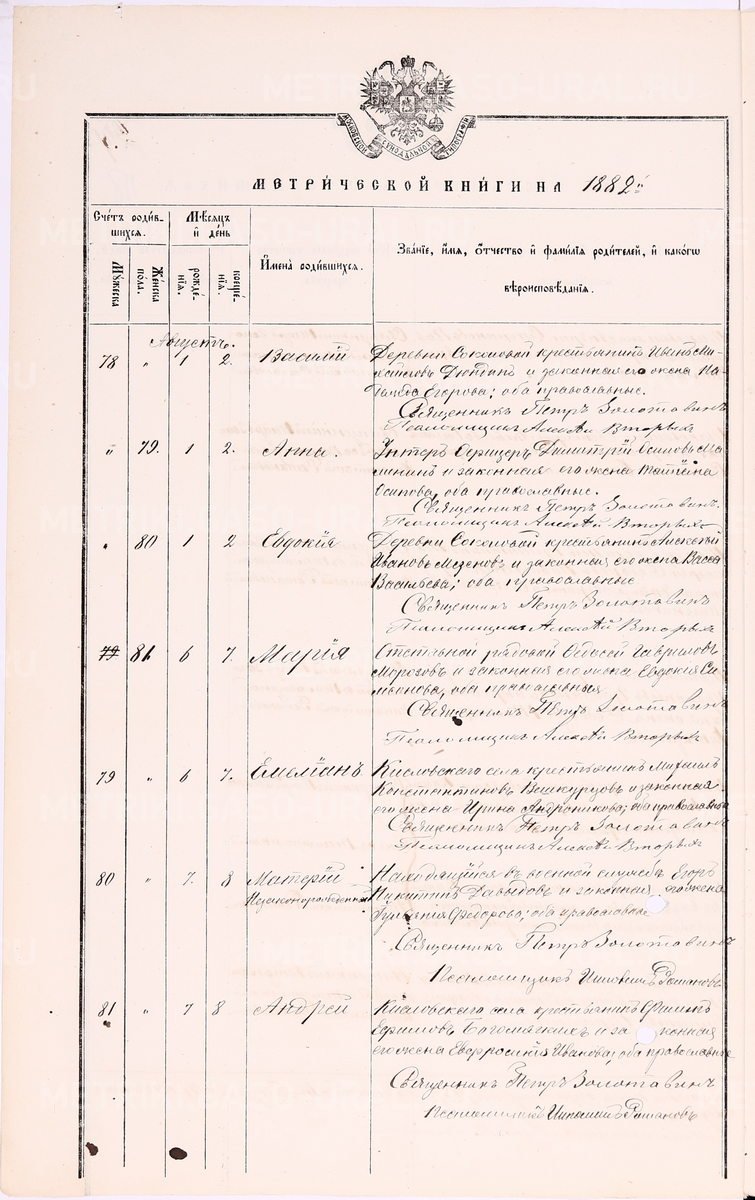 МОСКОВСКОЙ СѴНОДАЛЬНОЙ ТИПОГРАФІИ
МЕТРИ́ЧЕСКОЙ КНИ́ГИ НА 1882й
Сче́тъ роди́в-
шихся.
Мꙋжеска
Же́нска по́ла.
Мѣ́сяцъ
и҆ де́нь
рожде́-
нїѧ.
креще́-
нїѧ.
И҆мена̀ роди́вшихся.
Зва́нїе, и҆́мѧ, ѻ҆́тчество и҆ фами́лїѧ роди́телей, и҆ како́гѡ
вѣроисповѣ́данїѧ.
Августъ.
78 " 1 2. Василій Деревни Соколовой крестьянинъ Иванъ Ми-
хайловъ и законная его жена На-
Егорова; оба православные.
Священникъ Петръ Золотавинъ
Псаломщикъ Алексѣй Вторыхъ
" 79. 1 2. Анна. Унтеръ Офицеръ Димитрій Осиповъ Ма-
лининъ и законная его жена Татіана
Осипова, оба православные.
Священникъ Петръ Золотавинъ.
Псаломщикъ Алексѣй Вторыхъ
" 80 1 2 Евдокія Деревни Соколовой крестьянинъ Алексѣй
Ивановъ Мезеновъ и законная его жена Васса
Васильева; оба православные
Священникъ Петръ Золотавинъ
Псаломщикъ Алексѣй Вторыхъ
79 81 6 7. Марія рядовой Ѳедосей Гавриловъ
Морозовъ и законная его жена Евдокія Си-
мѣонова, оба православныя
Священникъ Петръ Золотавинъ
Псаломщикъ Алексѣй Вторыхъ
79 " 6 7. Емеліанъ Кисловскаго села крестьянинъ Михаилъ
Константиновъ Вешкурцовъ и законная
его жена Ирина Андроникова; оба православные
Священникъ Петръ Золотавинъ
Псаломщикъ Алексѣй Вторыхъ
80 " 7. 8 Матѳій Находящійся въ военной службѣ Егоръ
Незаконорожденный Никитинъ Давыдовъ и законная его жена
Ѳедорова; оба православные
Священникъ Петръ Золотавинъ
Псаломщикъ Романовъ
81 " 7 8 Андрей Кисловскаго села крестьянинъ Филипъ
Ефимовъ Богомягкихъ и законная
его жена Евфросинія Иванова; оба православные
Священникъ Петръ Золотавинъ
Псаломщикъ Романовъ